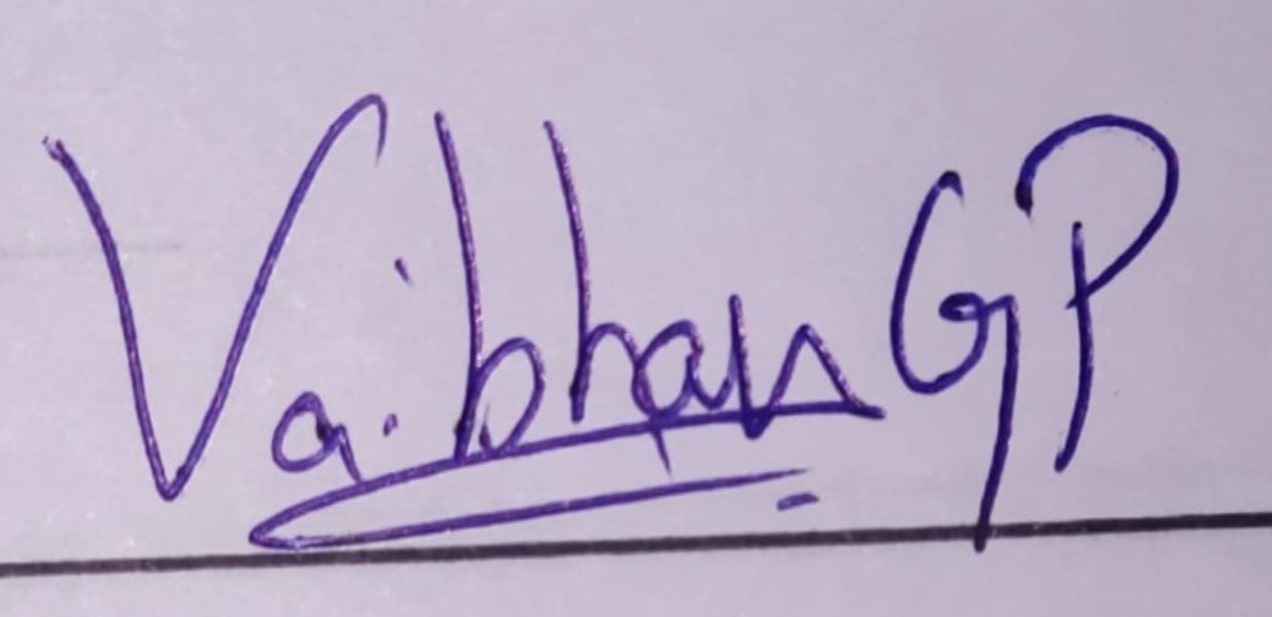 Vaibhav GP